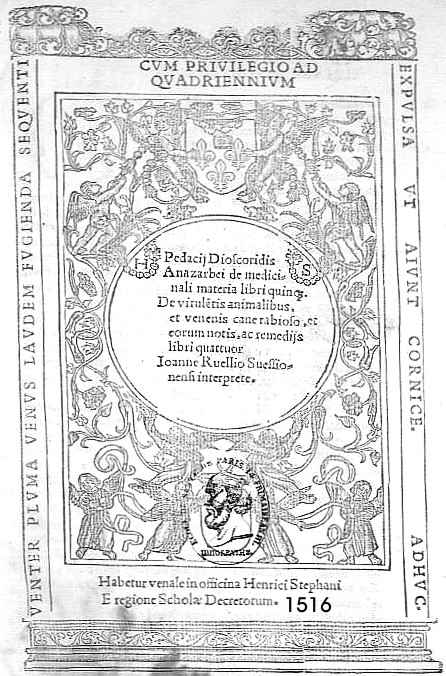 CVM PRIVILEGIO AD
QVADRIENNIVM
VENTER PLVMA VENVS LAVDEM FVGIENDA SEQVENTI
EXPVLSA VT AIVNT CORNICE. ADHVC.
H S
Pedacij Dioscoridis
Anazarbei de medici-
nali materia libri quinq.
De virulētis animalibus,
et venenis cane rabioso, et
eorum notis, ac remedijs
libri quattuor
Ioanne Ruellio Suessio-
nensi interprete.
PARIS
Habetur venale in officina Henrici Stephani
E regione Scholæ Decretorum. 1516